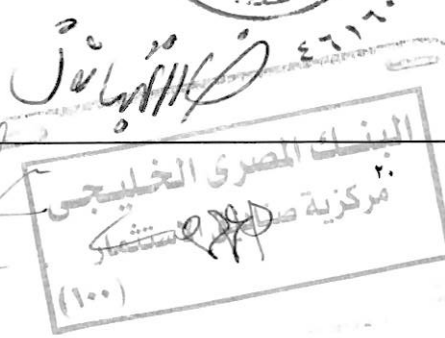 ٤٦١٦٠
البنك المصرى الخليجى
٢٠
مركزية صناديق الاستثمار
(١٠٠)